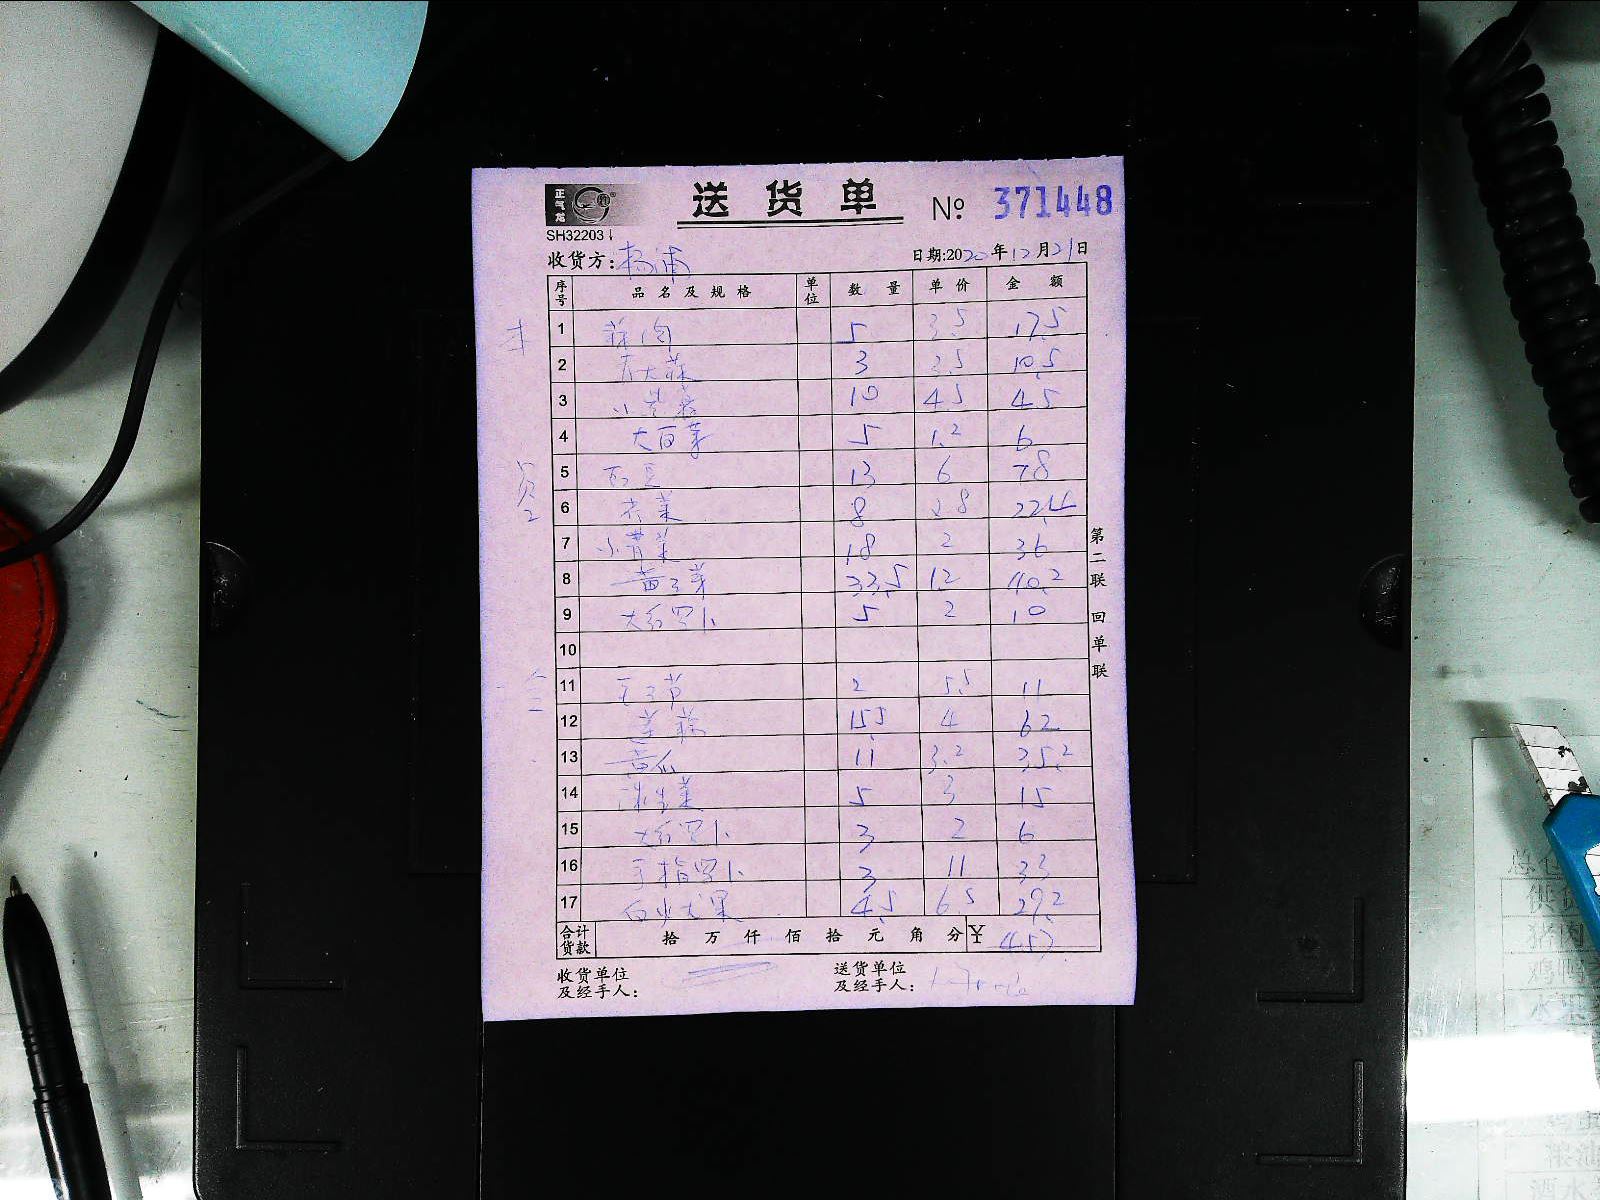 正气龙
SH32203
送货单 № 371448
收货方:杨浦 日期:2020年12月21日
序号 品名及规格 单位 数量 单价 金额
1 蒜肉 5 3.5 17.5
2 3 3.5 10.5
3 10 4.5 45
4 大白菜 5 1.2 6
5 13 6 78
6 8 2.8 22.4
7 小青菜 18 2 36
8 黄豆芽 33.5 1.2 40.2
9 大红罗卜 5 2 10
10
11 2 5.5 11
12 莲藕 15.5 4 62
13 黄瓜 11 3.2 35.2
14 球生菜 5 3 15
15 大红罗卜 3 2 6
16 手指罗卜 3 11 33
17 白火龙果 4.5 6.5 29.2
合计货款 拾 万 仟 佰 拾 元 角 分 ¥ 457
收货单位及经手人: 送货单位及经手人:
第二联 回单联
总仓
供货
猪肉
鸡鸭
水果
粮油
酒水